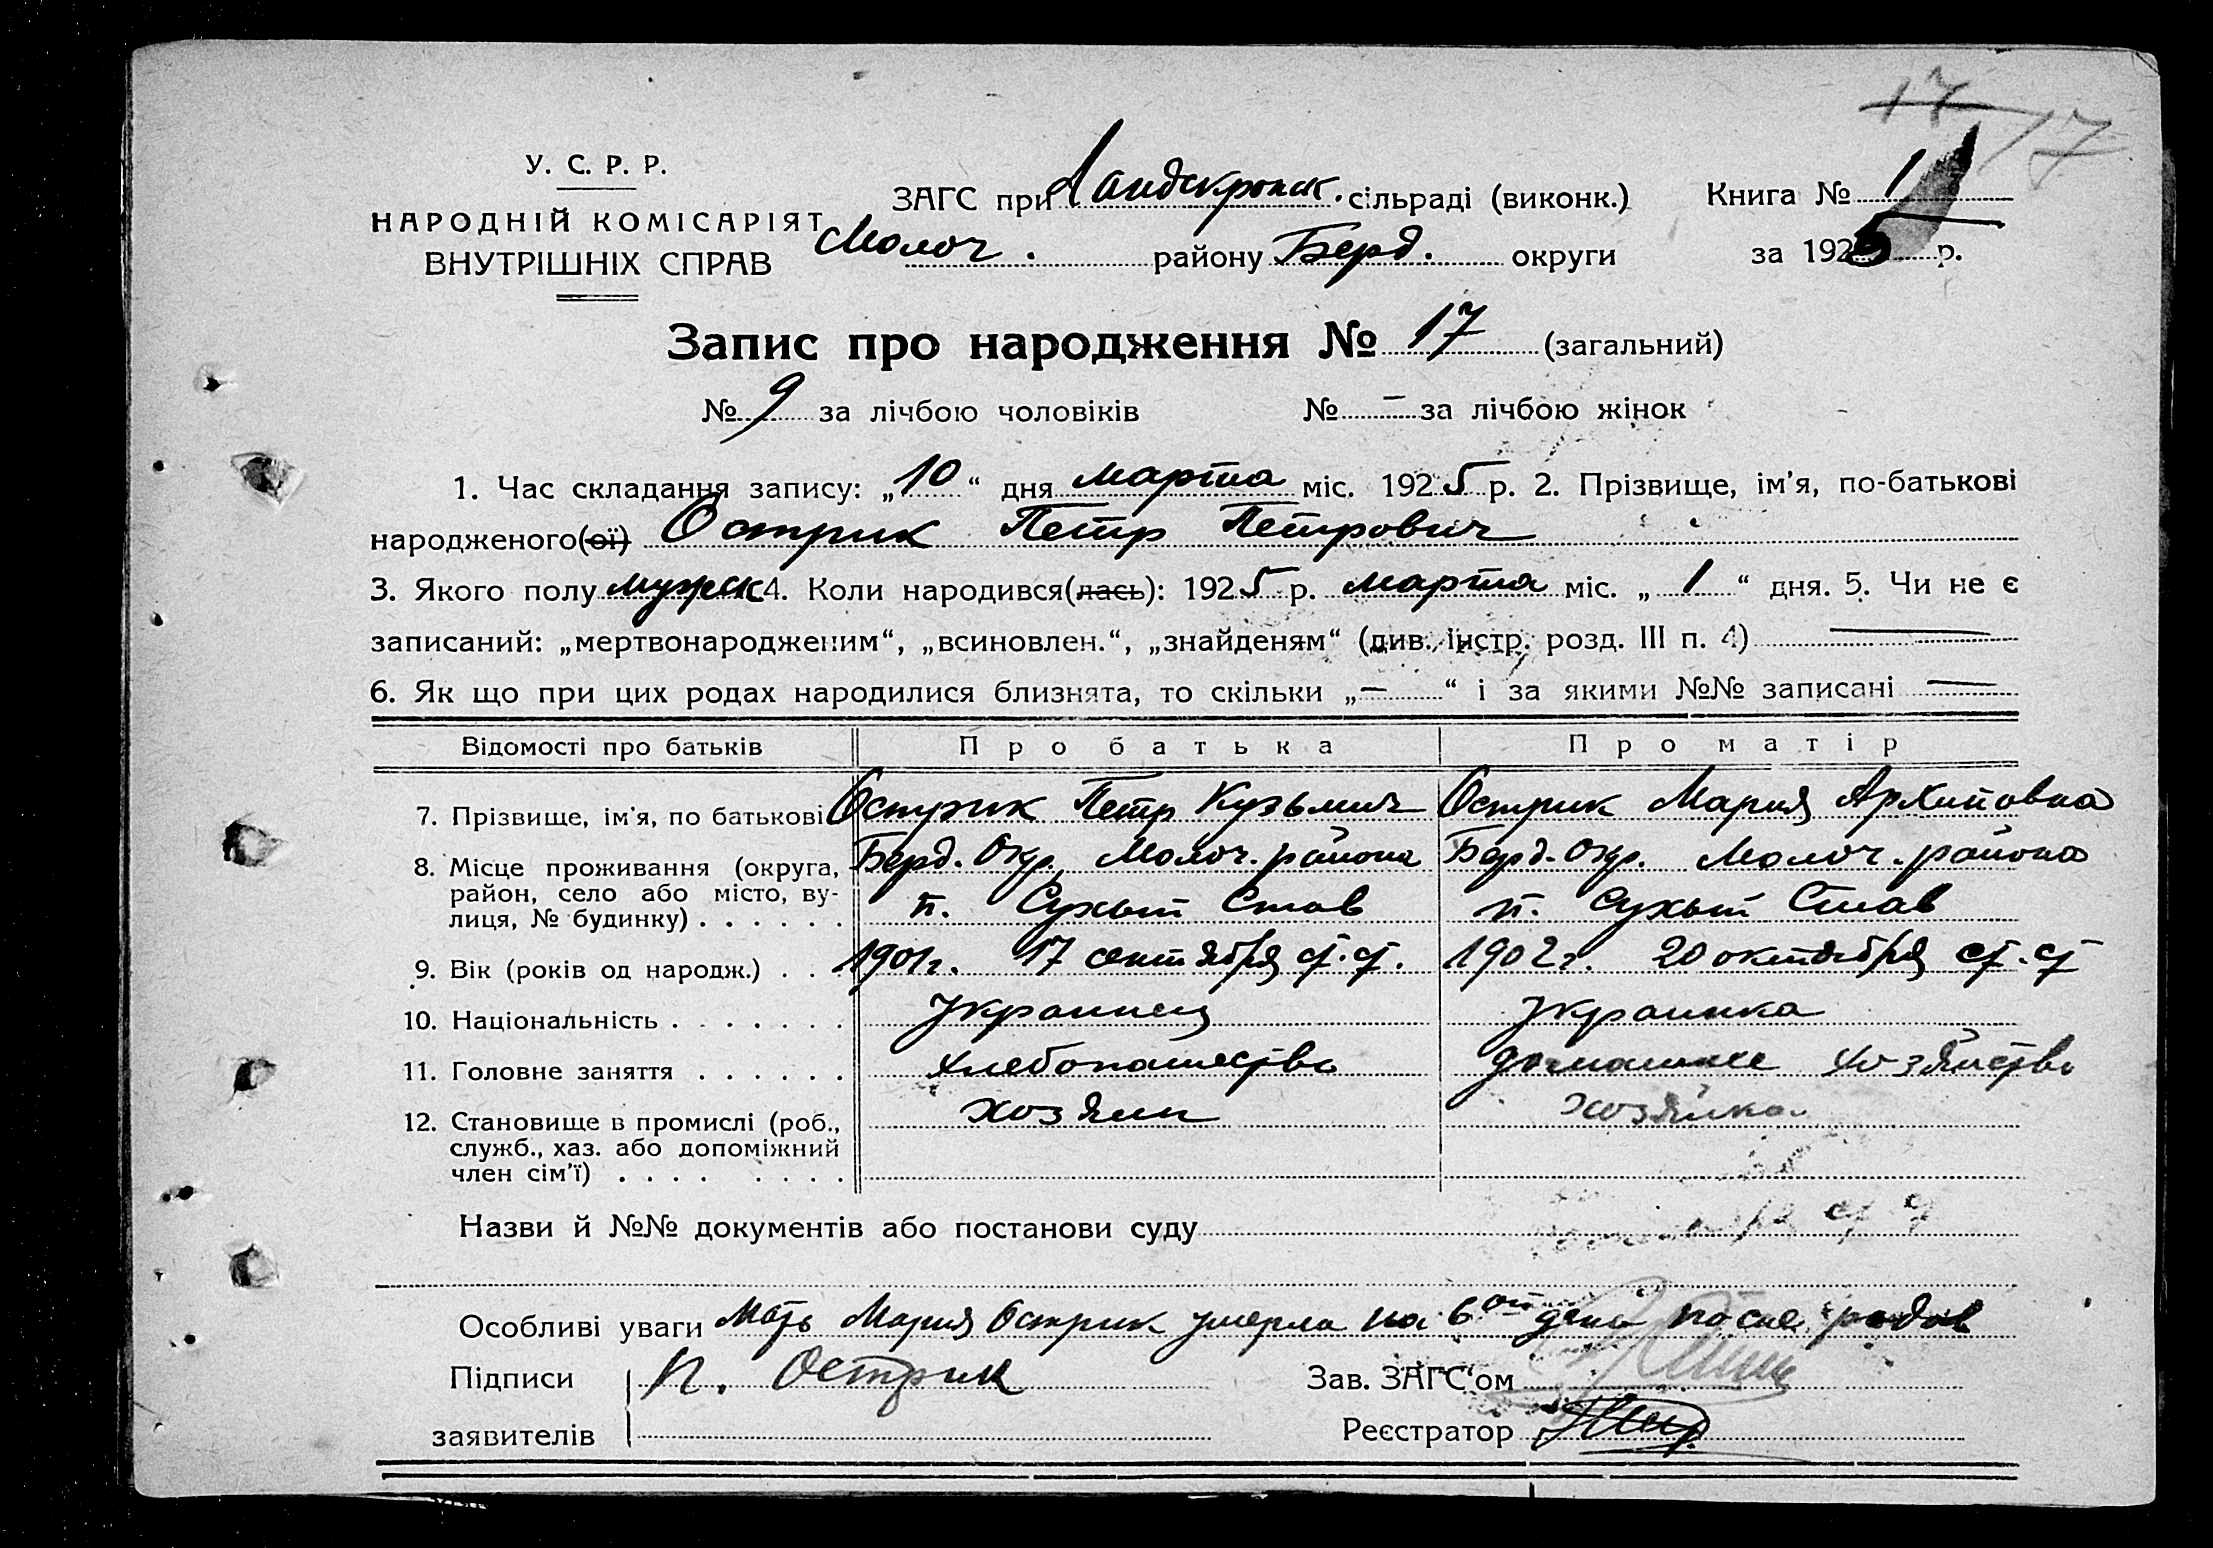 17 17
У. С. Р. Р.
НАРОДНІЙ КОМІСАРІЯТ
ВНУТРІШНІХ СПРАВ
ЗАГС при Ландскронск. сільраді (виконк.)
Молоч. району Берд. округи
Книга № 1
за 1925 р.
Запис про народження № 17 (загальний)
№ 9 за лічбою чоловіків № — за лічбою жінок
1. Час складання запису: „10“ дня марта міс. 1925 р. 2. Прізвище, ім'я, по-батькові
народженого(ої) Острик Петр Петрович
3. Якого полу мужск 4. Коли народився(лась): 1925 р. марта міс. „1“ дня. 5. Чи не є
записаний: „мертвонародженим“, „всиновлен.“, „знайденям“ (див. інстр. розд. III п. 4) —
6. Як що при цих родах народилися близнята, то скільки „—“ і за якими №№ записані —
Відомості про батьків Про батька Про матір
7. Прізвище, ім'я, по батькові Острик Петр Кузьмич Острик Мария Архиповна
8. Місце проживання (округа, район, село або місто, ву-лиця, № будинку) . . . . . . Берд. Окр. Молоч. района Берд. Окр. Молоч. района
п. Сухый Став п. Сухый Став
9. Вік (років од народж.) . . 1901г. 17 сентября ст. ст. 1902г. 20 октября ст. ст
10. Національність . . . . . . . Украинец Украинка
11. Головне заняття . . . . . . хлебопашество домашнее хозяйство
12. Становище в промислі (роб., служб., хаз. або допоміжний член сім'ї) . . . . . . . . хозяин хозяйка
Назви й №№ документів або постанови суду
Особливі уваги Мать Мария Острик умерла на 6ой день после родов
Підписи П. Острик Зав. ЗАГС'ом
заявителів Реєстратор